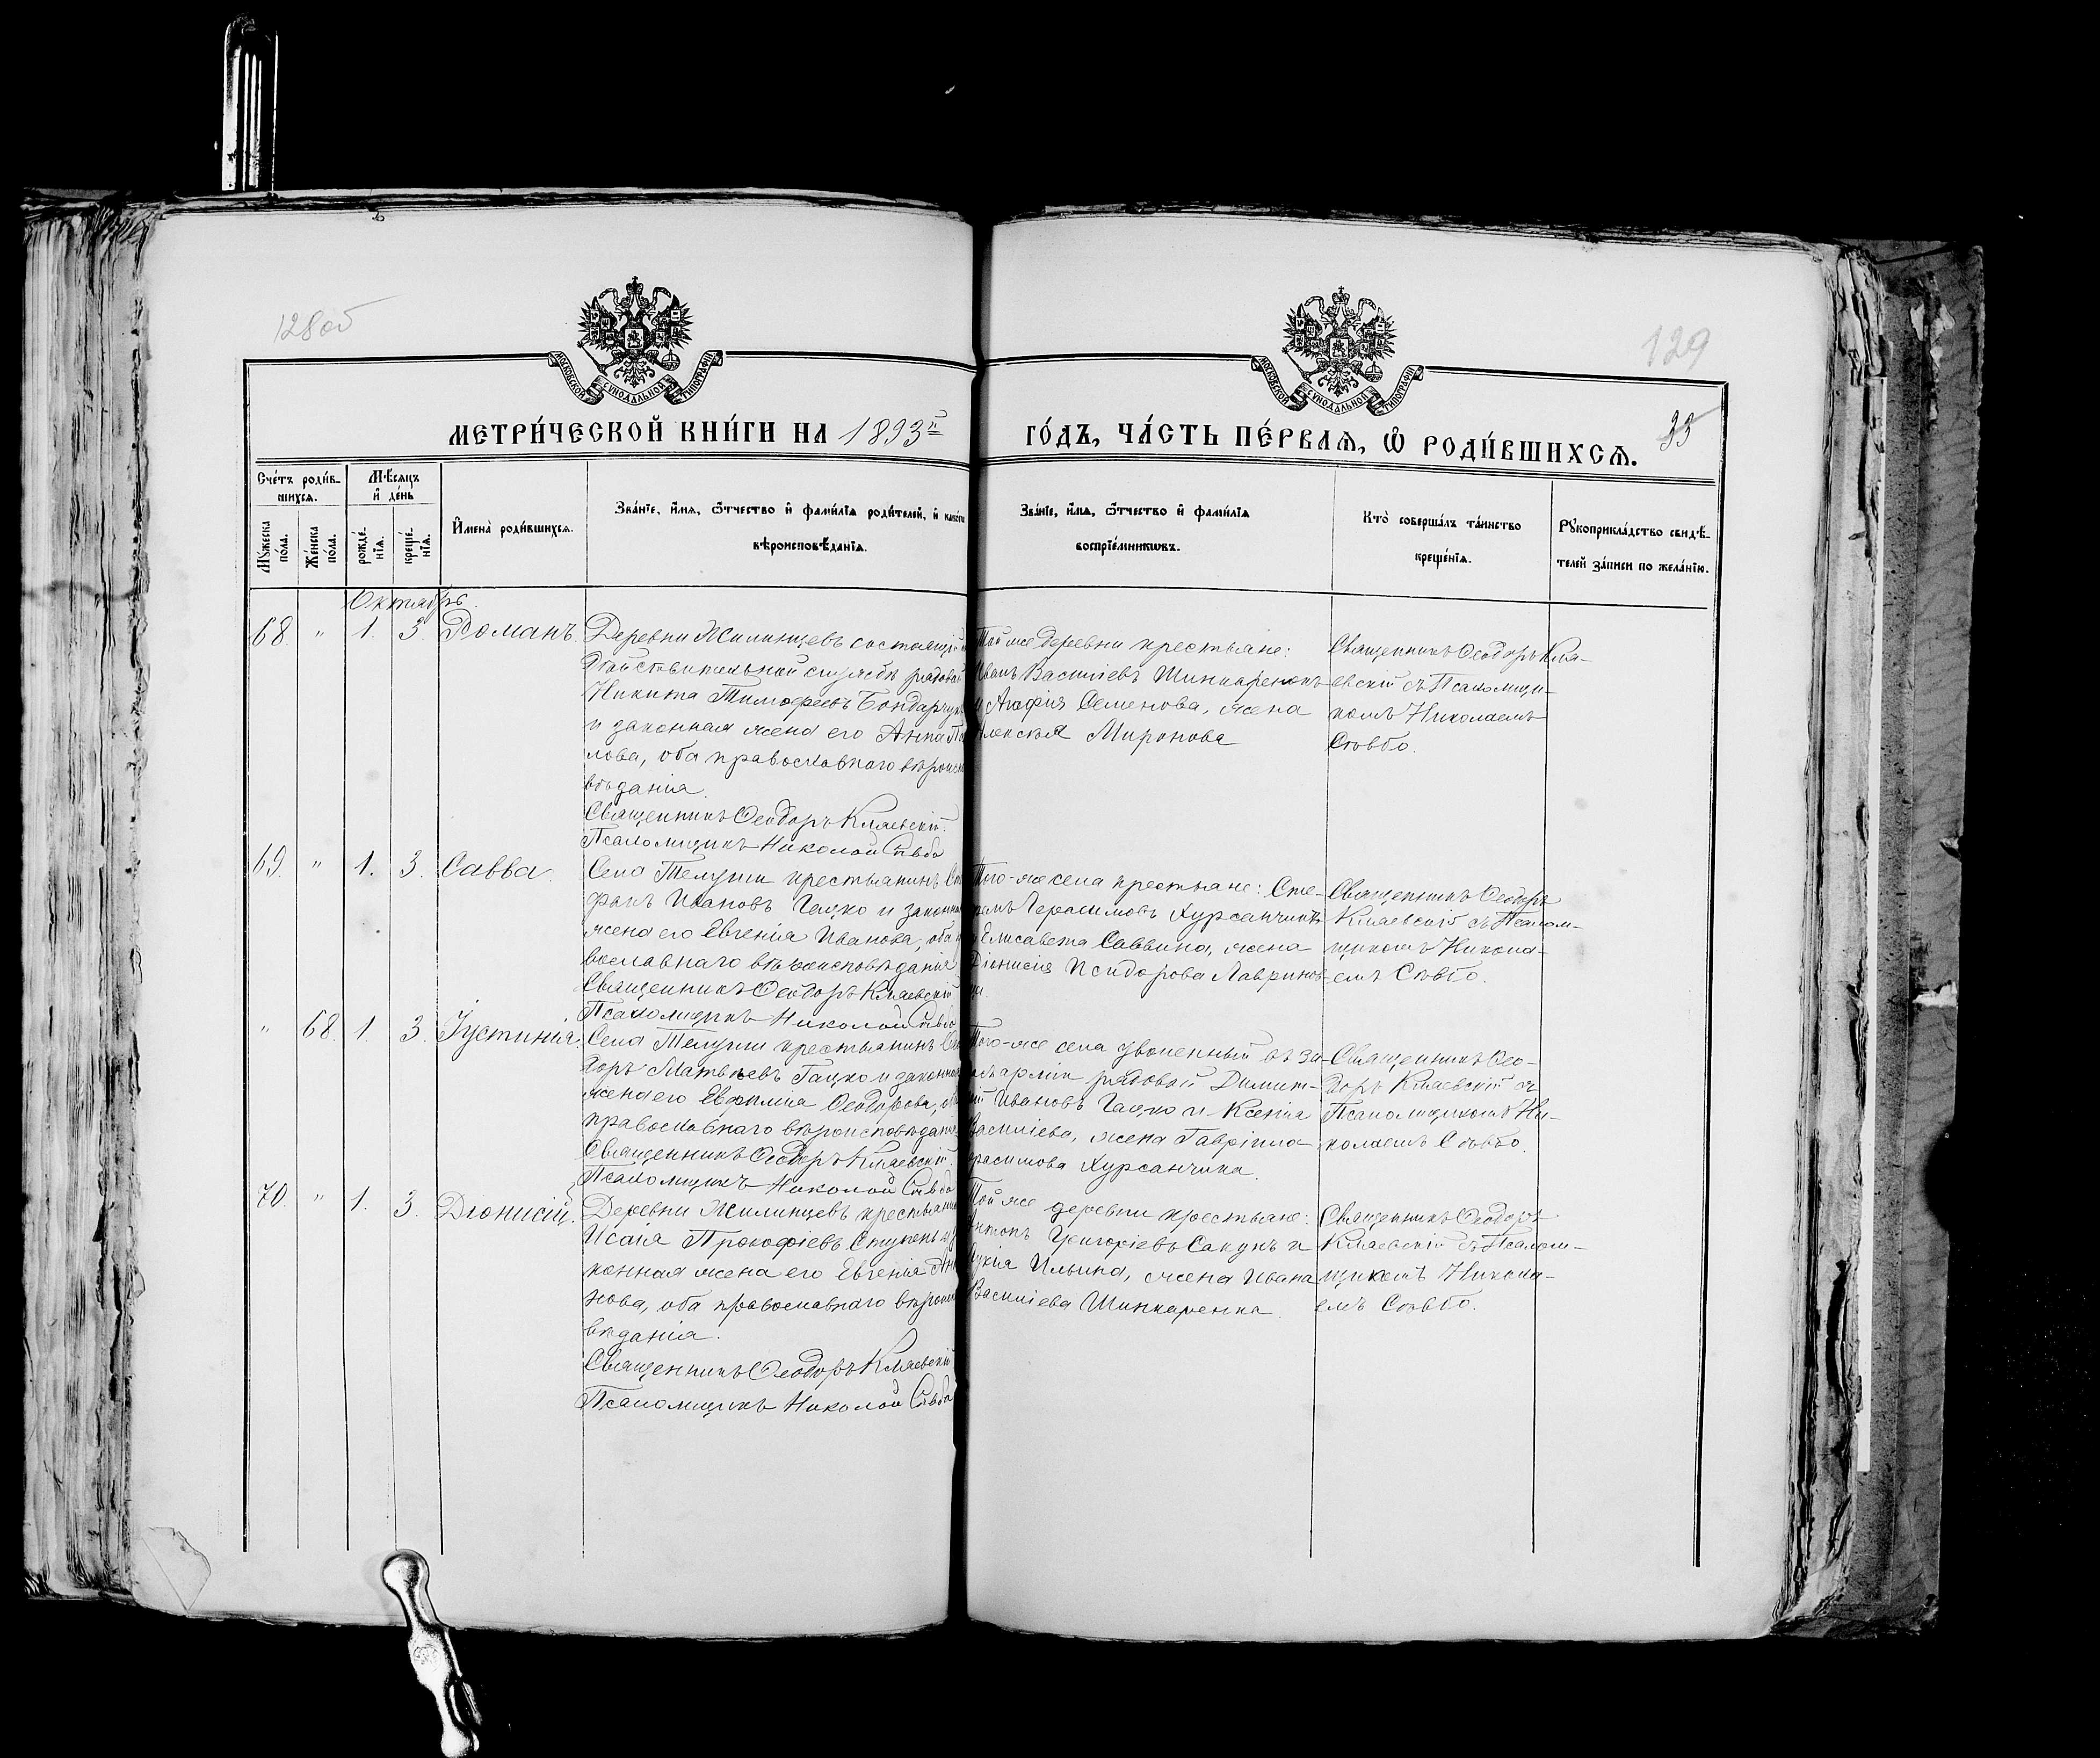 128об
129
МОСКОВСКОЙ СѴНОДАЛЬНОЙ ТИПОГРАФІИ
МОСКОВСКОЙ СѴНОДАЛЬНОЙ ТИПОГРАФІИ
МЕТРИ́ЧЕСКОЙ КНИ́ГИ НА 1893й
ГО́ДЪ, ЧА́СТЬ ПЕ́РВАѦ, Ѡ҆ РОДИ́ВШИХСѦ.
33
Сче́тъ роди́в-
шихсѧ.
Мꙋжеска
по́ла.
Же́нска
по́ла.
Мѣ́сѧцъ
и҆ де́нь
рожде́-
нїѧ.
креще́-
нїѧ.
И҆мена̀ роди́вшихсѧ.
Зва́нїе, и҆́мѧ, ѻ҆́тчество и҆ фами́лїѧ роди́телей, и҆ како́гѡ
вѣроисповѣ́данїѧ.
Зва́нїе, и҆́мѧ, ѻ҆́тчество и҆ фами́лїѧ
воспрїе́мникѡвъ.
Кто̀ соверша́лъ та́инство
креще́нїѧ.
Рꙋкоприкла́дство свидѣ́-
телей за́писи по жела́нїю.
Октябрь.
68. " 1. 3. Романъ.
Деревни Жилинцевъ состоящій
дѣйствительной службѣ рядовой
Никита Тимофеевъ Бондарчукъ
и законная жена его Анна
лова, оба православнаго
вѣданія.
Священникъ Ѳеодоръ Кляевскій.
Псаломщикъ Николай Сѣвбо
Той же деревни крестьяне:
Иванъ Василіевъ Шинкаренокъ
и Агафія Семенова, жена
Алексѣя Миронова
Священникъ Ѳеодоръ Кля-
евскій съ Псаломщи-
комъ Николаемъ
Сѣвбо.
69. " 1. 3. Савва.
Села Телуши крестьянинъ
фанъ Ивановъ Гацко и законная
жена его Евгенія Иванова, оба
вославнаго вѣроисповѣданія
Священникъ Ѳеодоръ Кляевскій
Псаломщикъ Николай Сѣвбо
Того-же села крестьяне: Сте-
фанъ Герасимовъ Хурсанчикъ
и Елисавета Саввина, жена
Діонисія Исидорова Лавринов-
Священникъ Ѳеодоръ
Кляевскій съ Псалом-
щикомъ Никола-
емъ Сѣвбо.
" 68. 1. 3. Іустинія.
Села Телуши крестьянинъ
доръ Матвѣевъ Гацко и законная
жена его Евфимія Ѳеодорова,
православнаго вѣроисповѣданія
Священникъ Ѳеодоръ Кляевскій.
Псаломщикъ Николай Сѣвбо
Того-же села уволенный въ за-
пасъ арміи рядовой Димит-
рій Ивановъ Гацко и Ксенія
Василіева, жена Гавріила
Герасимова Хурсанчика.
Священникъ Ѳео-
доръ Кляевскій съ
Псаломщикомъ Ни-
колаемъ Сѣвбо.
70. " 1. 3. Діонисій.
Деревни Жилинцевъ крестьянинъ
Исаія Прокофіевъ Ступень и
конная жена его Евгенія
нова, оба православнаго
вѣданія.
Священникъ Ѳеодоръ Кляевскій
Псаломщикъ Николай Сѣвбо
Той же деревни крестьяне:
Антонъ Григоріевъ Сакунъ и
Ильина, жена Ивана
Василіева Шинкаренка.
Священникъ Ѳеодоръ
Кляевскій съ Псалом-
щикомъ Никола-
емъ Сѣвбо.